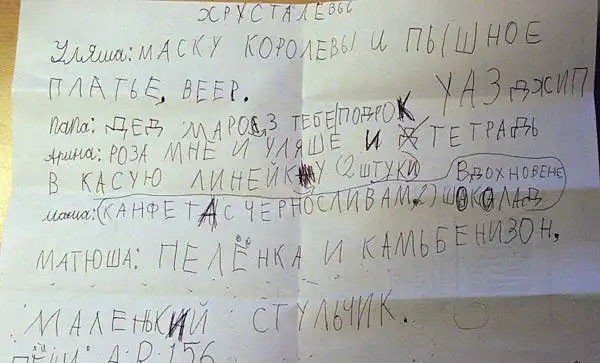 ХРУСТАЛЁВЫЕ
Уляша: МАСКУ КОРОЛЕВЫ И ПЫШНОЕ
ПЛАТЬЕ, ВЕЕР.
ПАПА: ДЕД МАРОЗ ТЕБЕ ПОДРОК УАЗ ДЖИП
АРИНА: РОЗА МНЕ И УЛЯШЕ И ТЕТРАДЬ
В КАСУЮ ЛИНЕЙКУ (2 ШТУКИ) ВДОХНОВЕНЕ
МАМА: (КАНФЕТА С ЧЕРНОСЛИВАМ,2) ШОКОЛАД
МАТЮША: ПЕЛЁНКА И КАМЬБЕНИЗОН.
МАЛЕНЬКИЙ СТУЛЬЧИК.
А.Р. 156